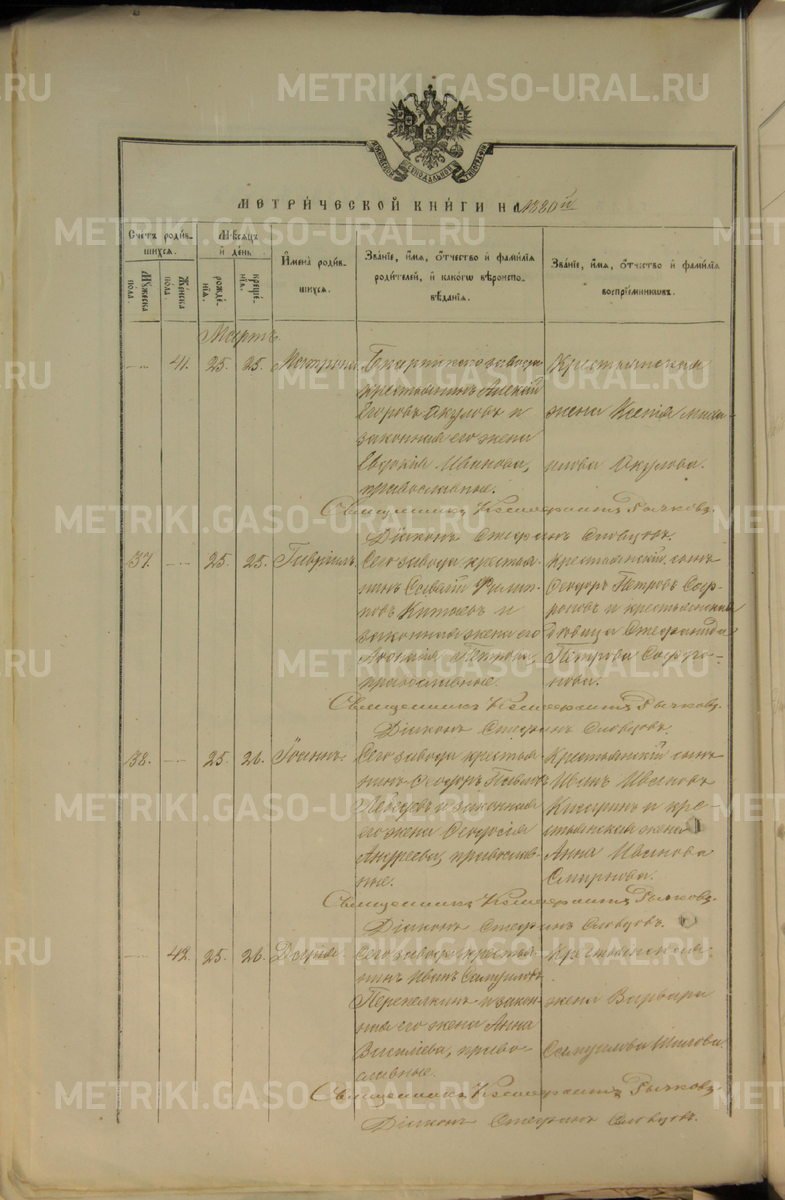 METRIKI.GASO-URAL.RU
МЕТРИ́ЧЕСКОЙ КНИ́ГИ НА 1880й
Счётъ роди́вшихся.
Мѹжеска пола.
Же́нска пола.
Мѣсяцъ и день
рожде́нїя.
креще́нїя.
И҆мена роди́вшихся.
Зва́нїе, и҆́мя, ѻ҆́тчество и҆ фамилїя роди́телей, и҆ како́гѡ вѣроисповѣ́данїя.
Зва́нїе, и҆́мя, ѻ҆́тчество и҆ фамилїя воспрїе́мникѡвъ.
Мартъ.
41. 25. 25. Матрона
завода
крестьянинъ Алексій
Егоровъ Окуловъ и
законная его жена
Евдокія Иванова,
православные.
Крестьянская
жена Ксенія Михаи-
лова Окулова.
Священникъ Рычковъ.
Діаконъ Стефанъ Словцовъ.
37. 25. 25. Гавріилъ.
Сего завода крестья-
нинъ Савватій Филип-
повъ Китаевъ и
законная жена его
Петрова,
православные.
Крестьянскій сынъ
Ѳеодоръ Петровъ Саф-
роновъ и крестьянская
дѣвица Стефанида
Петрова Сафро-
нова.
Священникъ Рычковъ.
Діаконъ Стефанъ Словцовъ.
38. 25. 26. Іоаннъ.
Сего завода крестья-
нинъ Ѳеодоръ Павловъ
и законная
его жена Ѳеодосія
Андреева, православ-
ные.
Крестьянскій сынъ
Иванъ Ивановъ
и кре-
стьянская жена
Анна Иванова
Смирнова.
Священникъ Рычковъ.
Діаконъ Стефанъ Словцовъ.
42. 25. 26. Дарія.
Сего завода крестья-
нинъ Иванъ Самуиловъ
Перепелкинъ и закон-
ная его жена Анна
Василіева, право-
славные.
Крестьянская
жена Варвара
Самуилова Шилова.
Священникъ Рычковъ.
Діаконъ Стефанъ Словцовъ.